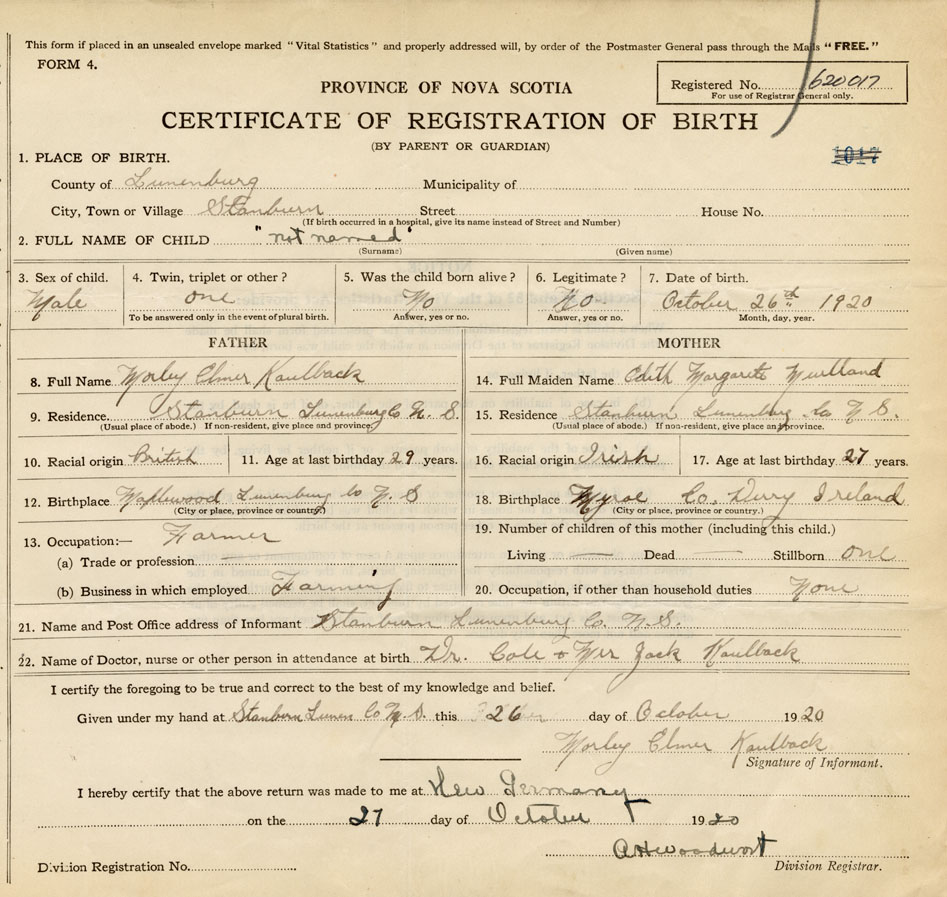 This form if placed in an unsealed envelope marked "Vital Statistics" and properly addressed will, by order of the Postmaster General pass through the Mails "FREE."
FORM 4.
Registered No. 620017
For use of Registrar General only.
PROVINCE OF NOVA SCOTIA
CERTIFICATE OF REGISTRATION OF BIRTH
(BY PARENT OR GUARDIAN)
1017
1. PLACE OF BIRTH.
County of Lunenburg Municipality of
City, Town or Village Stanburn Street House No.
(If birth occurred in a hospital, give its name instead of Street and Number)
2. FULL NAME OF CHILD "not named"
(Surname) (Given name)
3. Sex of child. 4. Twin, triplet or other? 5. Was the child born alive? 6. Legitimate? 7. Date of birth.
Male one No No October 26th 1920
To be answered only in the event of plural birth. Answer, yes or no. Answer, yes or no. Month, day, year.
FATHER
8. Full Name Morley Elmer Kaulback
9. Residence Stanburn Lunenburg Co N. S.
(Usual place of abode.) If non-resident, give place and province.
10. Racial origin British 11. Age at last birthday 29 years.
12. Birthplace Maplewood Lunenburg Co N S
(City or place, province or country)
13. Occupation:— Farmer
(a) Trade or profession
(b) Business in which employed Farming
MOTHER
14. Full Maiden Name Edith Margarete
15. Residence Stanburn Lunenburg Co N S.
(Usual place of abode.) If non-resident, give place and province.
16. Racial origin Irish 17. Age at last birthday 27 years.
18. Birthplace Co. Derry Ireland
(City or place, province or country.)
19. Number of children of this mother (including this child.)
Living — Dead — Stillborn one
20. Occupation, if other than household duties None
21. Name and Post Office address of Informant Stanburn Lunenburg Co. N. S.
22. Name of Doctor, nurse or other person in attendance at birth Dr. Cole + Mrs Jack Kaulback
I certify the foregoing to be true and correct to the best of my knowledge and belief.
Given under my hand at Stanburn Lunen Co N. S. this 26 day of October 1920
Morley Elmer Kaulback
Signature of Informant.
I hereby certify that the above return was made to me at New Germany
on the 27 day of October 1920
Division Registration No. Division Registrar.